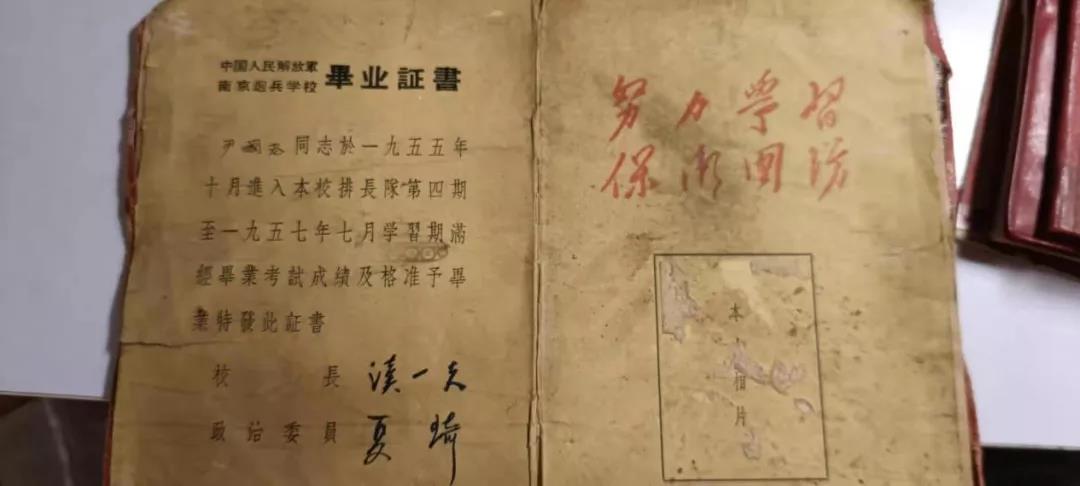 中国人民解放軍
南京炮兵学校
畢业証書
尹國 同志於一九五五年
十月進入本校排長隊第四期
至一九五七年七月学習期滿
經畢業考試成績及格准予畢
業特發此証書
校 長 一夫
政治委員 夏琦
努力學習
保衛國防
本人相片